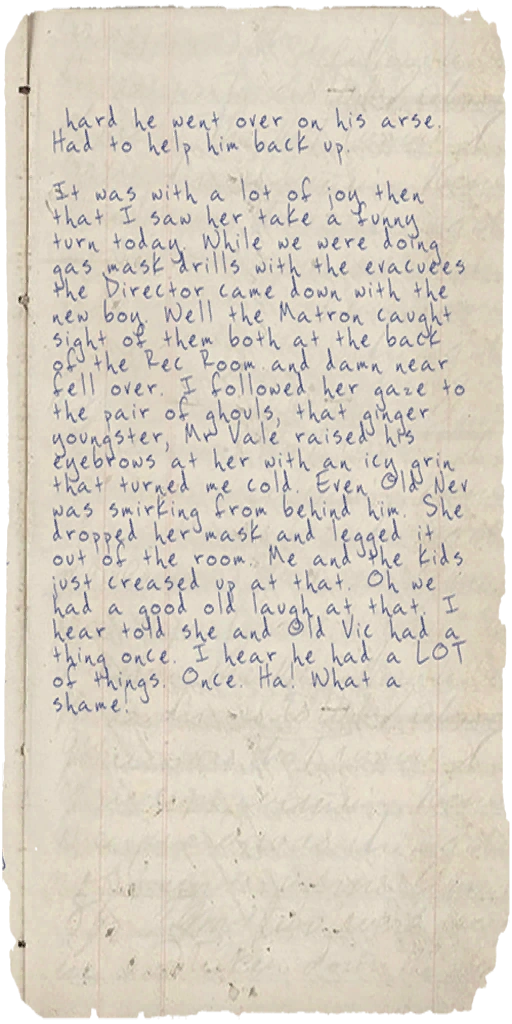 hard he went over on his arse.
Had to help him back up.
It was with a lot of joy then
that I saw her take a funny
turn today. While we were doing
gas mask drills with the evacuees
the Director came down with the
new boy. Well the Matron caught
sight of them both at the back
of the Rec Room and damn near
fell over. I followed her gaze to
the pair of ghouls, that ginger
youngster, Mr Vale raised his
eyebrows at her with an icy grin
that turned me cold. Even Old Nev
was smirking from behind him. She
dropped her mask and legged it
out of the room. Me and the kids
just creased up at that. Oh we
had a good old laugh at that. I
hear told she and Old Vic had a
thing once. I hear he had a LOT
of things. Once. Ha! What a
shame!